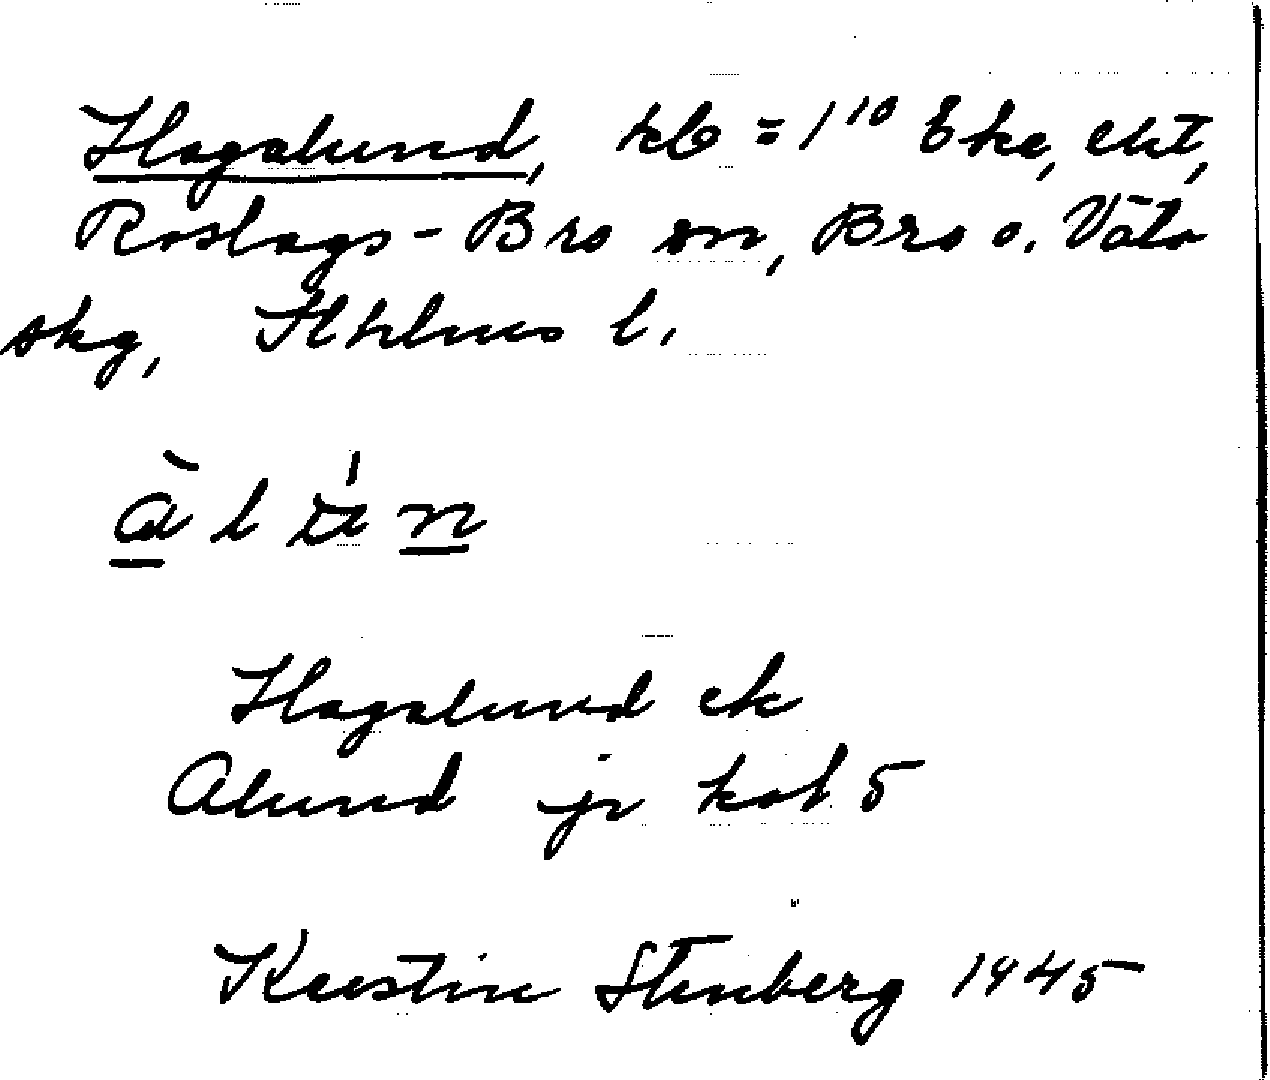 Hagalund, kb = 1¹⁰ Eke, ekt,
Roslags-Bro sn, Bro o. Vätö
skg, Sthlms l.
Hagalund ek
Alund jr kbl 5
Kerstin Stenberg 1945